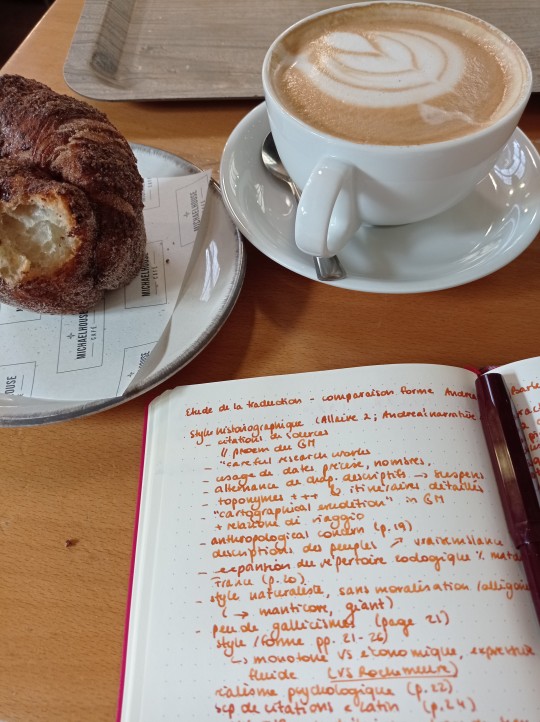 MICHAELHOUSE
CAFÉ
MICHAELHOUSE
CAFÉ
MICHAELHOUSE
CAFÉ
HOUSE
Etude de la traduction - comparaison forme Andrea
Style historiographique (Allaire 2; Andrea's narrative
- citations de sources
// proem du GM
- "careful research works
- usage de dates précise, nombres,
- alternance de descriptifs → suspens
- toponymes +++ & itinéraires détaillés
- "cartographical erudition" in GM
+ relazione di viaggio
- anthropological concern (p.19)
descriptions des peuples ↗ vraisemblance
- expansion du répertoire zoologique % mat
France (p.20)
- style naturaliste, sans moralisation/allégorie
(→ manticore, giant)
- peu de gallicismes (page 21)
style/forme pp. 21-26)
↳ monotone VS économique, expressive
fluide (VS Rochemeure)
réalisme psychologique (p.22)
de citations latin (p.24)